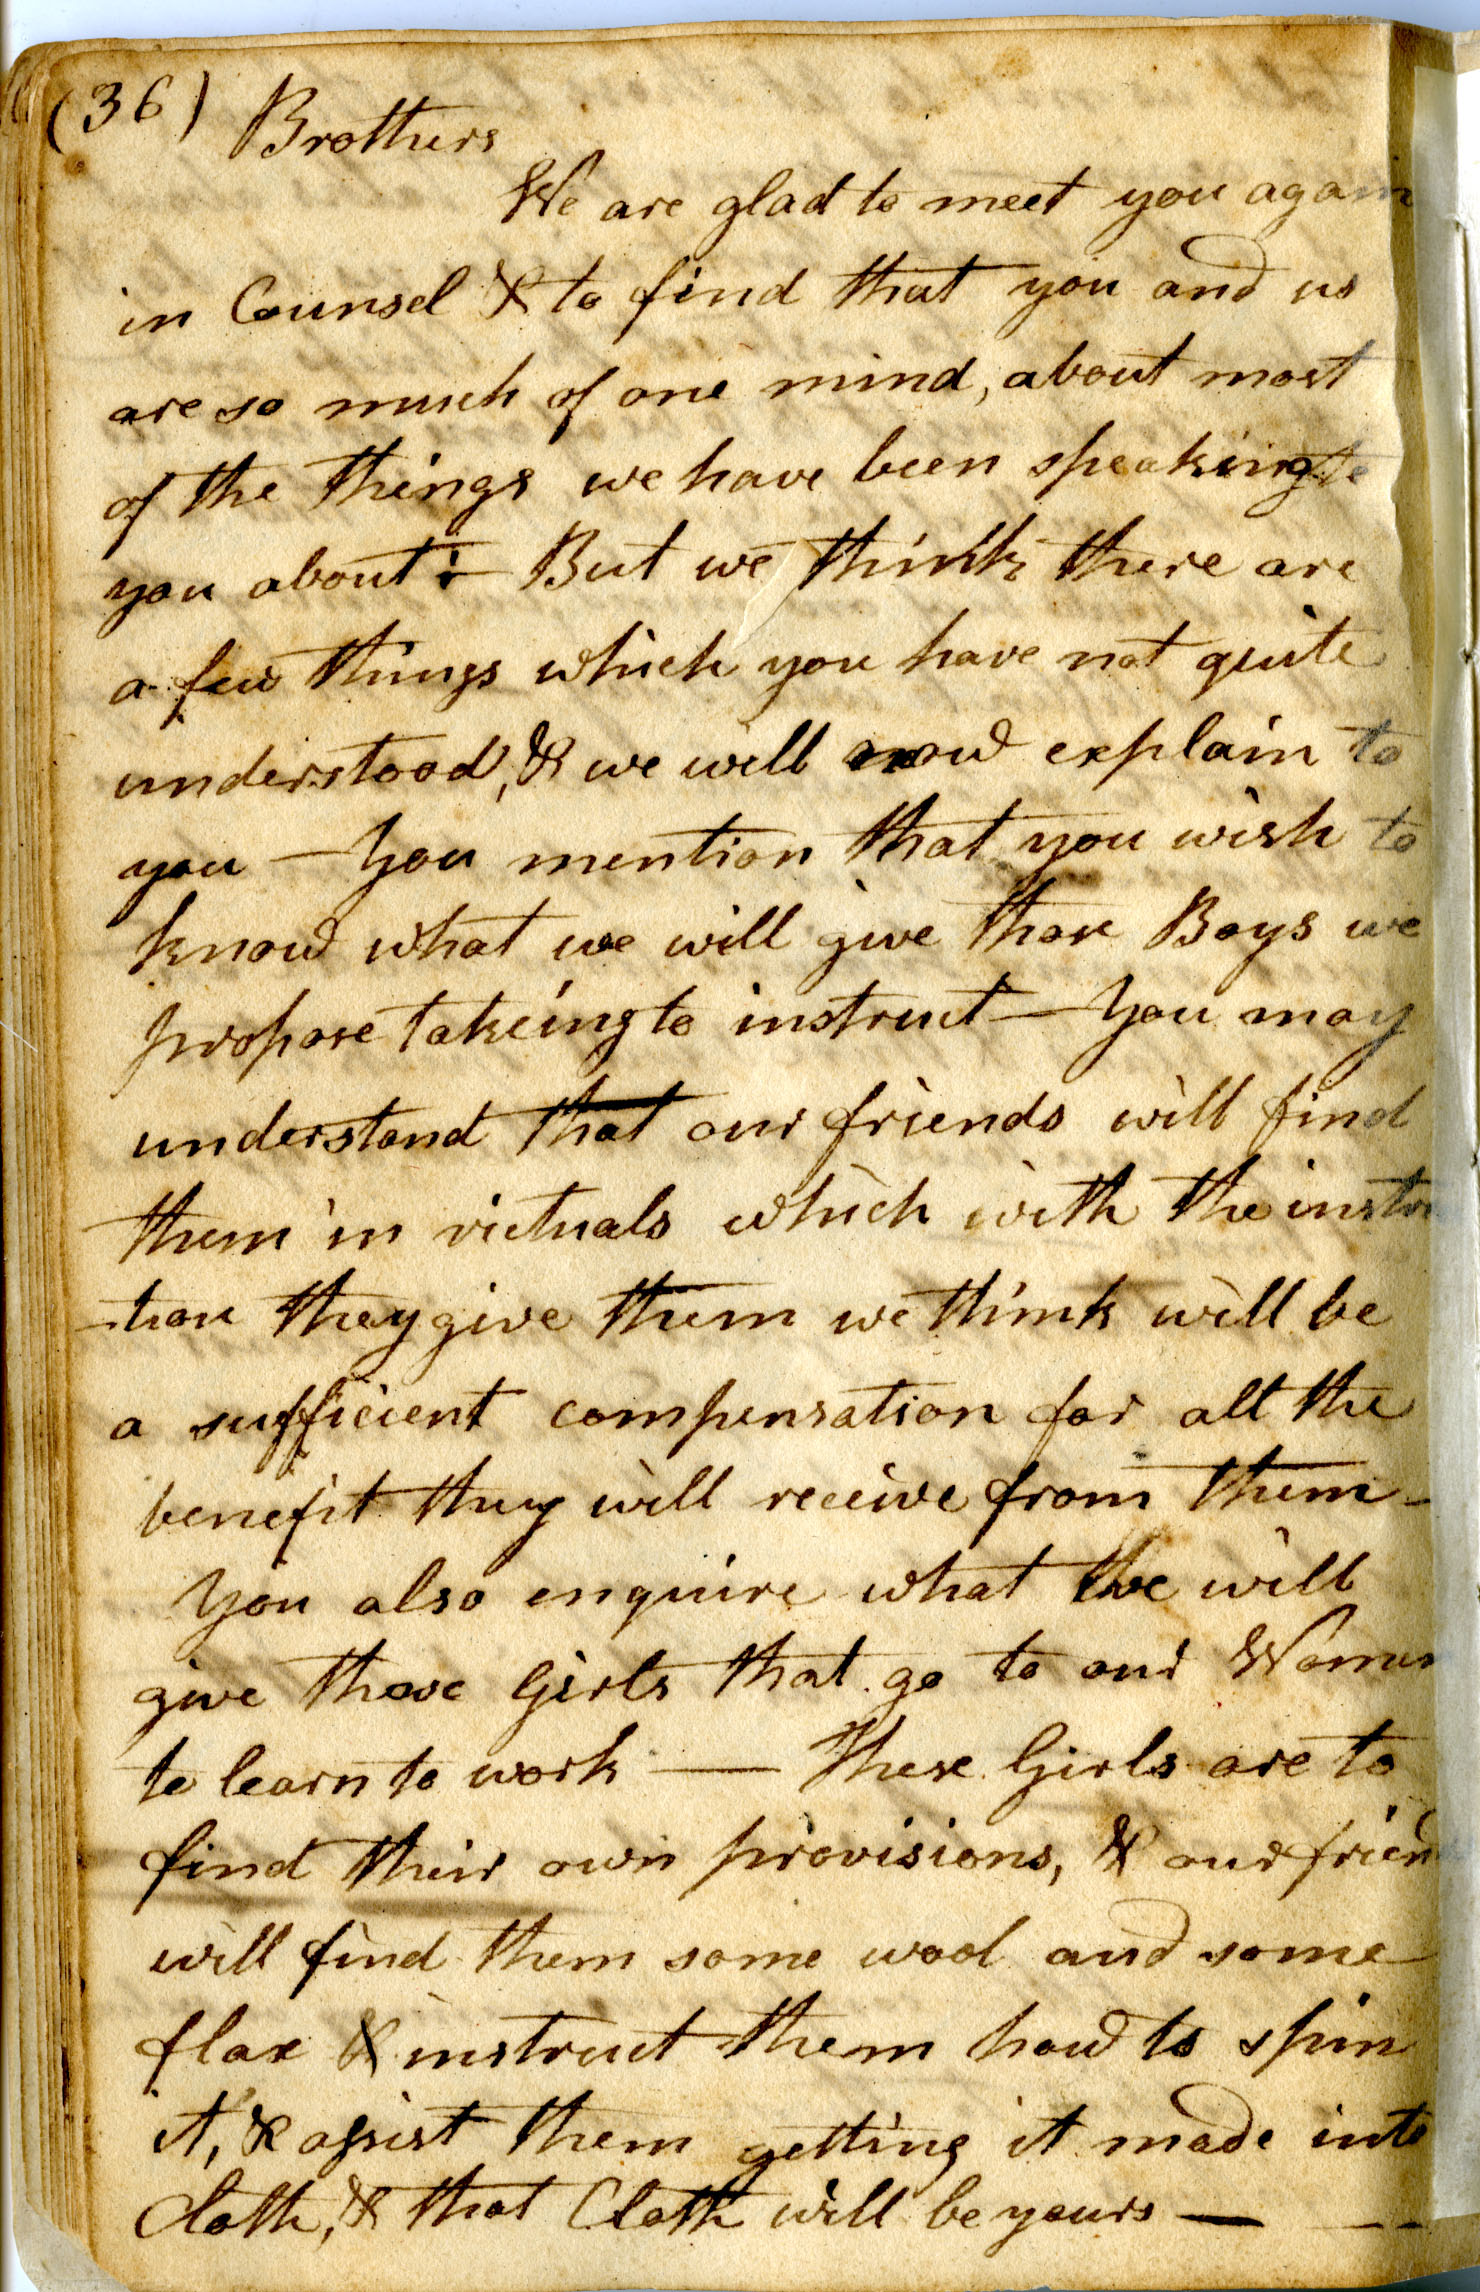 (36) Brothers
We are glad to meet you again
in Counsel & to find that you and us
are so much of one mind, about most
of the things we have been speaking to
you about:— But we think there are
a few things which you have not quite
understood, & we will now explain to
you — You mention that you wish to
know what we will give those Boys we
propose takeing to instruct — You may
understand that our friends will find
them in victuals which with the instruc
-tion they give them we think will be
a sufficient compensation for all the
benefit they will receive from them —
You also enquire what we will
give those Girls that go to our Women
to learn to work — These Girls are to
find their own provisions, & our friend
will find them some wool and some
flax & instruct them how to spin
it, & assist them getting it made into
Cloth, & that Cloth will be yours — —